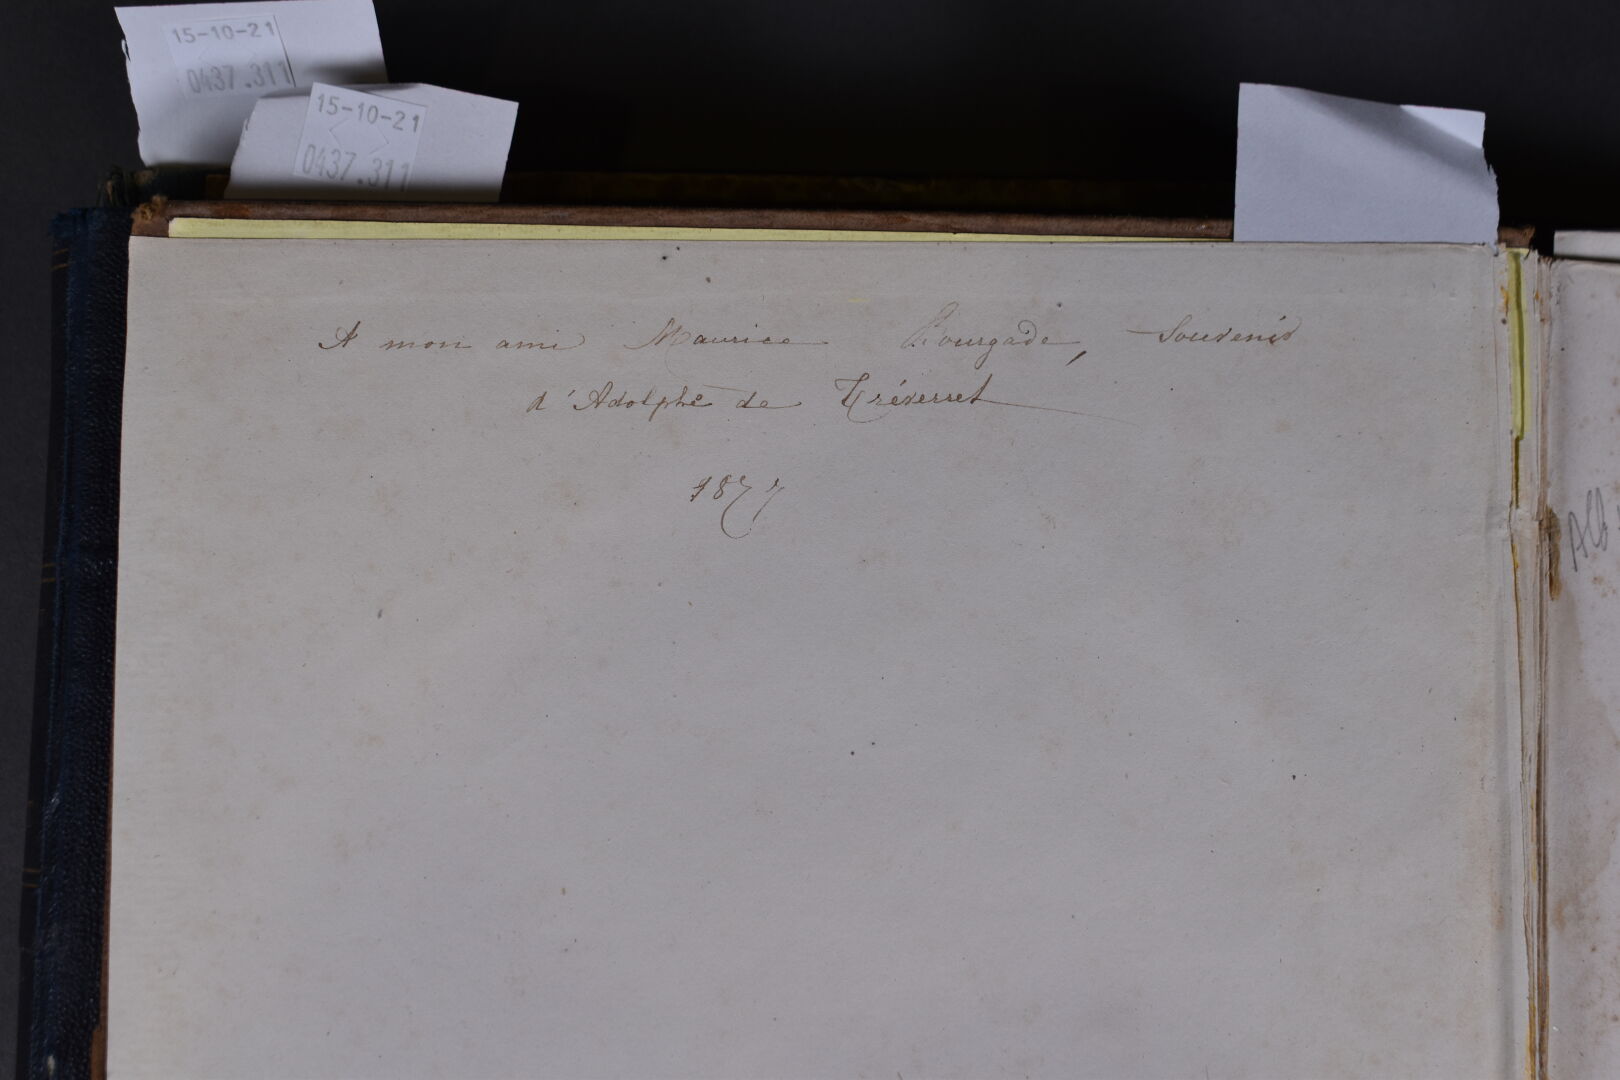 15-10-21
0437.311
15-10-21
0437.311
A mon ami Maurice Bourgade, Souvenir
d'Adolphe de Tréverret
1877